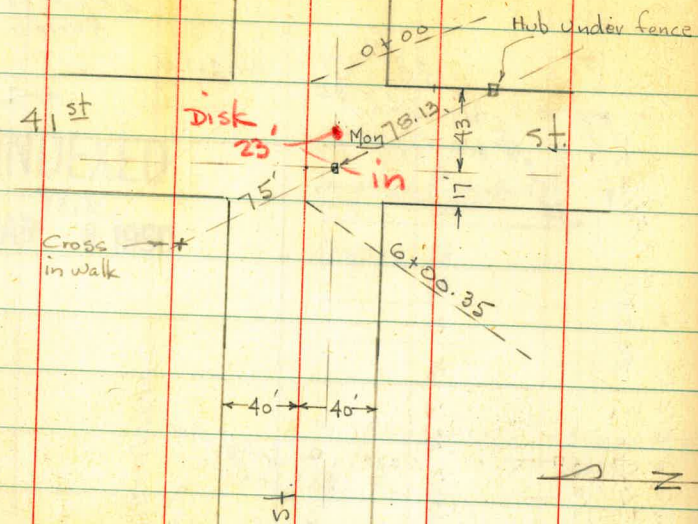 Hub under fence
0+00
41st
Disk
23'
Mon
78.13
43
17'
St.
in
75'
Cross
in walk
6+00.35
40'
40'
St.
N